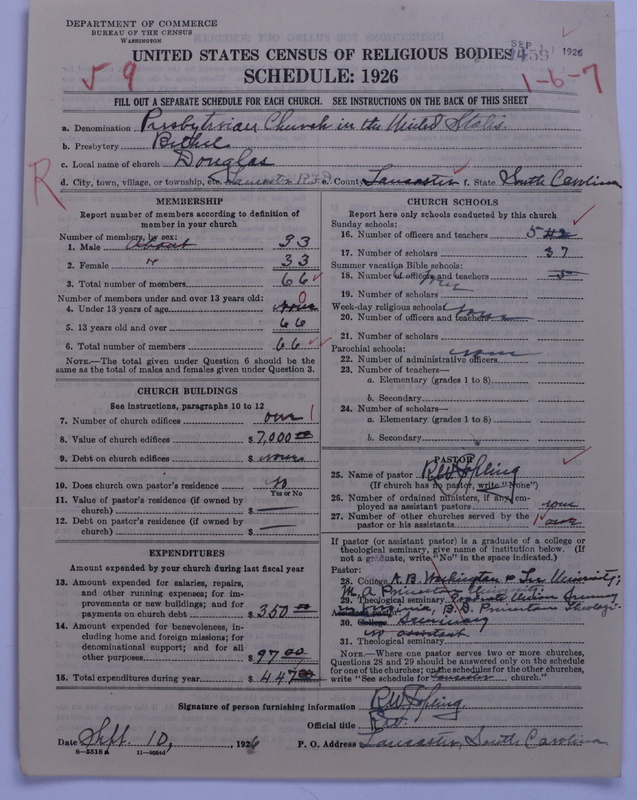 DEPARTMENT OF COMMERCE
BUREAU OF THE CENSUS
WASHINGTON
UNITED STATES CENSUS OF RELIGIOUS BODIES
SEP 1926
SCHEDULE: 1926
59
1-6-7
FILL OUT A SEPARATE SCHEDULE FOR EACH CHURCH. SEE INSTRUCTIONS ON THE BACK OF THIS SHEET
a. Denomination Presbyterian Church in the United States.
b. Presbytery Bethel
c. Local name of church Douglas
R
d. City, town, village, or township, etc. Lancaster R.F.D. e. County Lancaster f. State South Carolina
MEMBERSHIP
Report number of members according to definition of
member in your church
Number of members, by sex:
1. Male About 33
2. Female " 33
3. Total number of members 66
Number of members under and over 13 years old:
4. Under 13 years of age none 0
5. 13 years old and over 66
6. Total number of members 66
NOTE.—The total given under Question 6 should be
same as the total of males and females given under Question 3.
CHURCH BUILDINGS
See instructions, paragraphs 10 to 12
7. Number of church edifices one 1
8. Value of church edifices $ 7,000.00
9. Debt on church edifices $ none
10. Does church own pastor's residence No
Yes or No
11. Value of pastor's residence (if owned by
church) $ —
12. Debt on pastor's residence (if owned by
church) $ —
EXPENDITURES
Amount expended by your church during last fiscal year
13. Amount expended for salaries, repairs,
and other running expenses; for im-
provements or new buildings; and for
payments on church debt $ 350.00
14. Amount expended for benevolences, in-
cluding home and foreign missions; for
denominational support; and for all
other purposes $ 97.00
15. Total expenditures during year $ 447.00
CHURCH SCHOOLS
Report here only schools conducted by this church
Sunday schools:
16. Number of officers and teachers 5
17. Number of scholars 37
Summer vacation Bible schools:
18. Number of officers and teachers
19. Number of scholars
Week-day religious schools:
20. Number of officers and teachers
21. Number of scholars
Parochial schools:
22. Number of administrative officers
23. Number of teachers—
a. Elementary (grades 1 to 8)
b. Secondary
24. Number of scholars—
a. Elementary (grades 1 to 8)
b. Secondary
PASTOR
25. Name of pastor
(If church has no pastor, write "None")
26. Number of ordained ministers, if any, em-
ployed as assistant pastors none
27. Number of other churches served by the
pastor or his assistants 1 one
If pastor (or assistant pastor) is a graduate of a college or
theological seminary, give name of institution below. (If
not a graduate, write "No" in the space indicated.)
Pastor:
28. College A.B. Washington & Lee University;
M.A. Princeton University
29. Theological seminary Graduate Union Seminary
Assistant pastor:
in Virginia, B.D. Princeton Theologi-
30. College Seminary
no assistant
31. Theological seminary
NOTE.—Where one pastor serves two or more churches,
Questions 28 and 29 should be answered only on the schedule
for one of the churches; on the schedules for the other churches,
write "See schedule for Lancaster church."
Signature of person furnishing information
Official title Rev.
Date Sept. 10, 1926 P. O. Address Lancaster, South Carolina
8—5518a 11—9054d